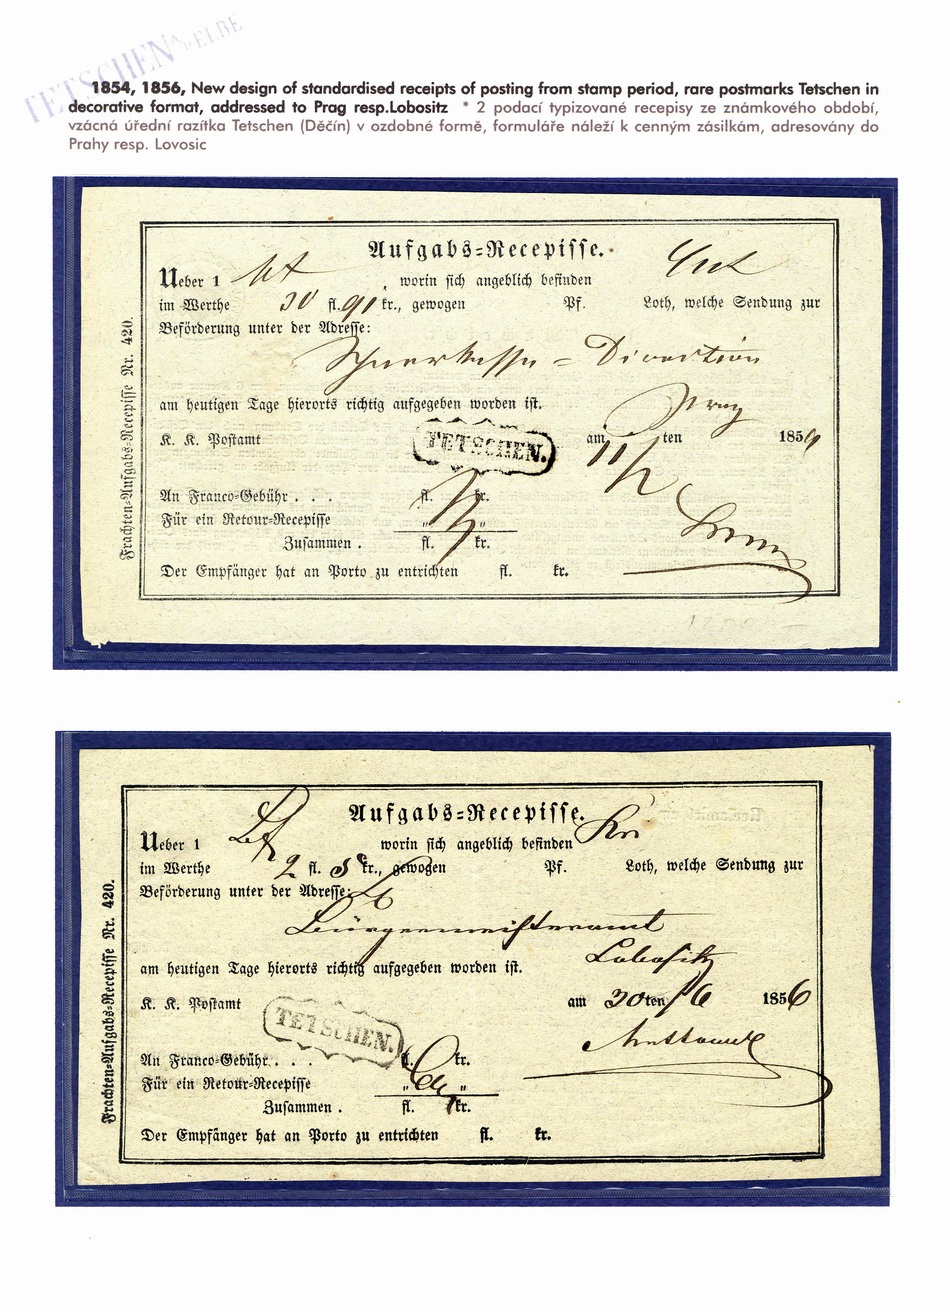 TETSCHEN A/D ELBE
1854, 1856, New design of standardised receipts of posting from stamp period, rare postmarks Tetschen in
decorative format, addressed to Prag resp.Lobositz * 2 podací typizované recepisy ze známkového období,
vzácná úřední razítka Tetschen (Děčín) v ozdobné formě, formuláře náleží k cenným zásilkám, adresovány do
Prahy resp. Lovosic
Frachten-Aufgabs-Recepisse Nr. 420.
Aufgabs-Recepisse.
Ueber 1 worin sich angeblich befinden
im Werthe 30 fl. 91 kr., gewogen Pf. Loth, welche Sendung zur
Beförderung unter der Adresse:
Sparkasse-Direction
Prag
am heutigen Tage hierorts richtig aufgegeben worden ist.
K. K. Postamt TETSCHEN. am 11/2 ten 185
An Franco-Gebühr . . . fl. kr.
Für ein Retour-Recepisse „ „
Zusammen . fl. kr.
Der Empfänger hat an Porto zu entrichten fl. kr.
Frachten-Aufgabs-Recepisse Nr. 420.
Aufgabs-Recepisse.
Ueber 1 worin sich angeblich befinden
im Werthe 2 fl. kr., gewogen Pf. Loth, welche Sendung zur
Beförderung unter der Adresse:
Bürgermeisteramt
Lobositz
am heutigen Tage hierorts richtig aufgegeben worden ist.
K. K. Postamt TETSCHEN. am 30 ten /6 1856
An Franco-Gebühr . . . fl. kr.
Für ein Retour-Recepisse „ „
Zusammen . fl. kr.
Der Empfänger hat an Porto zu entrichten fl. kr.